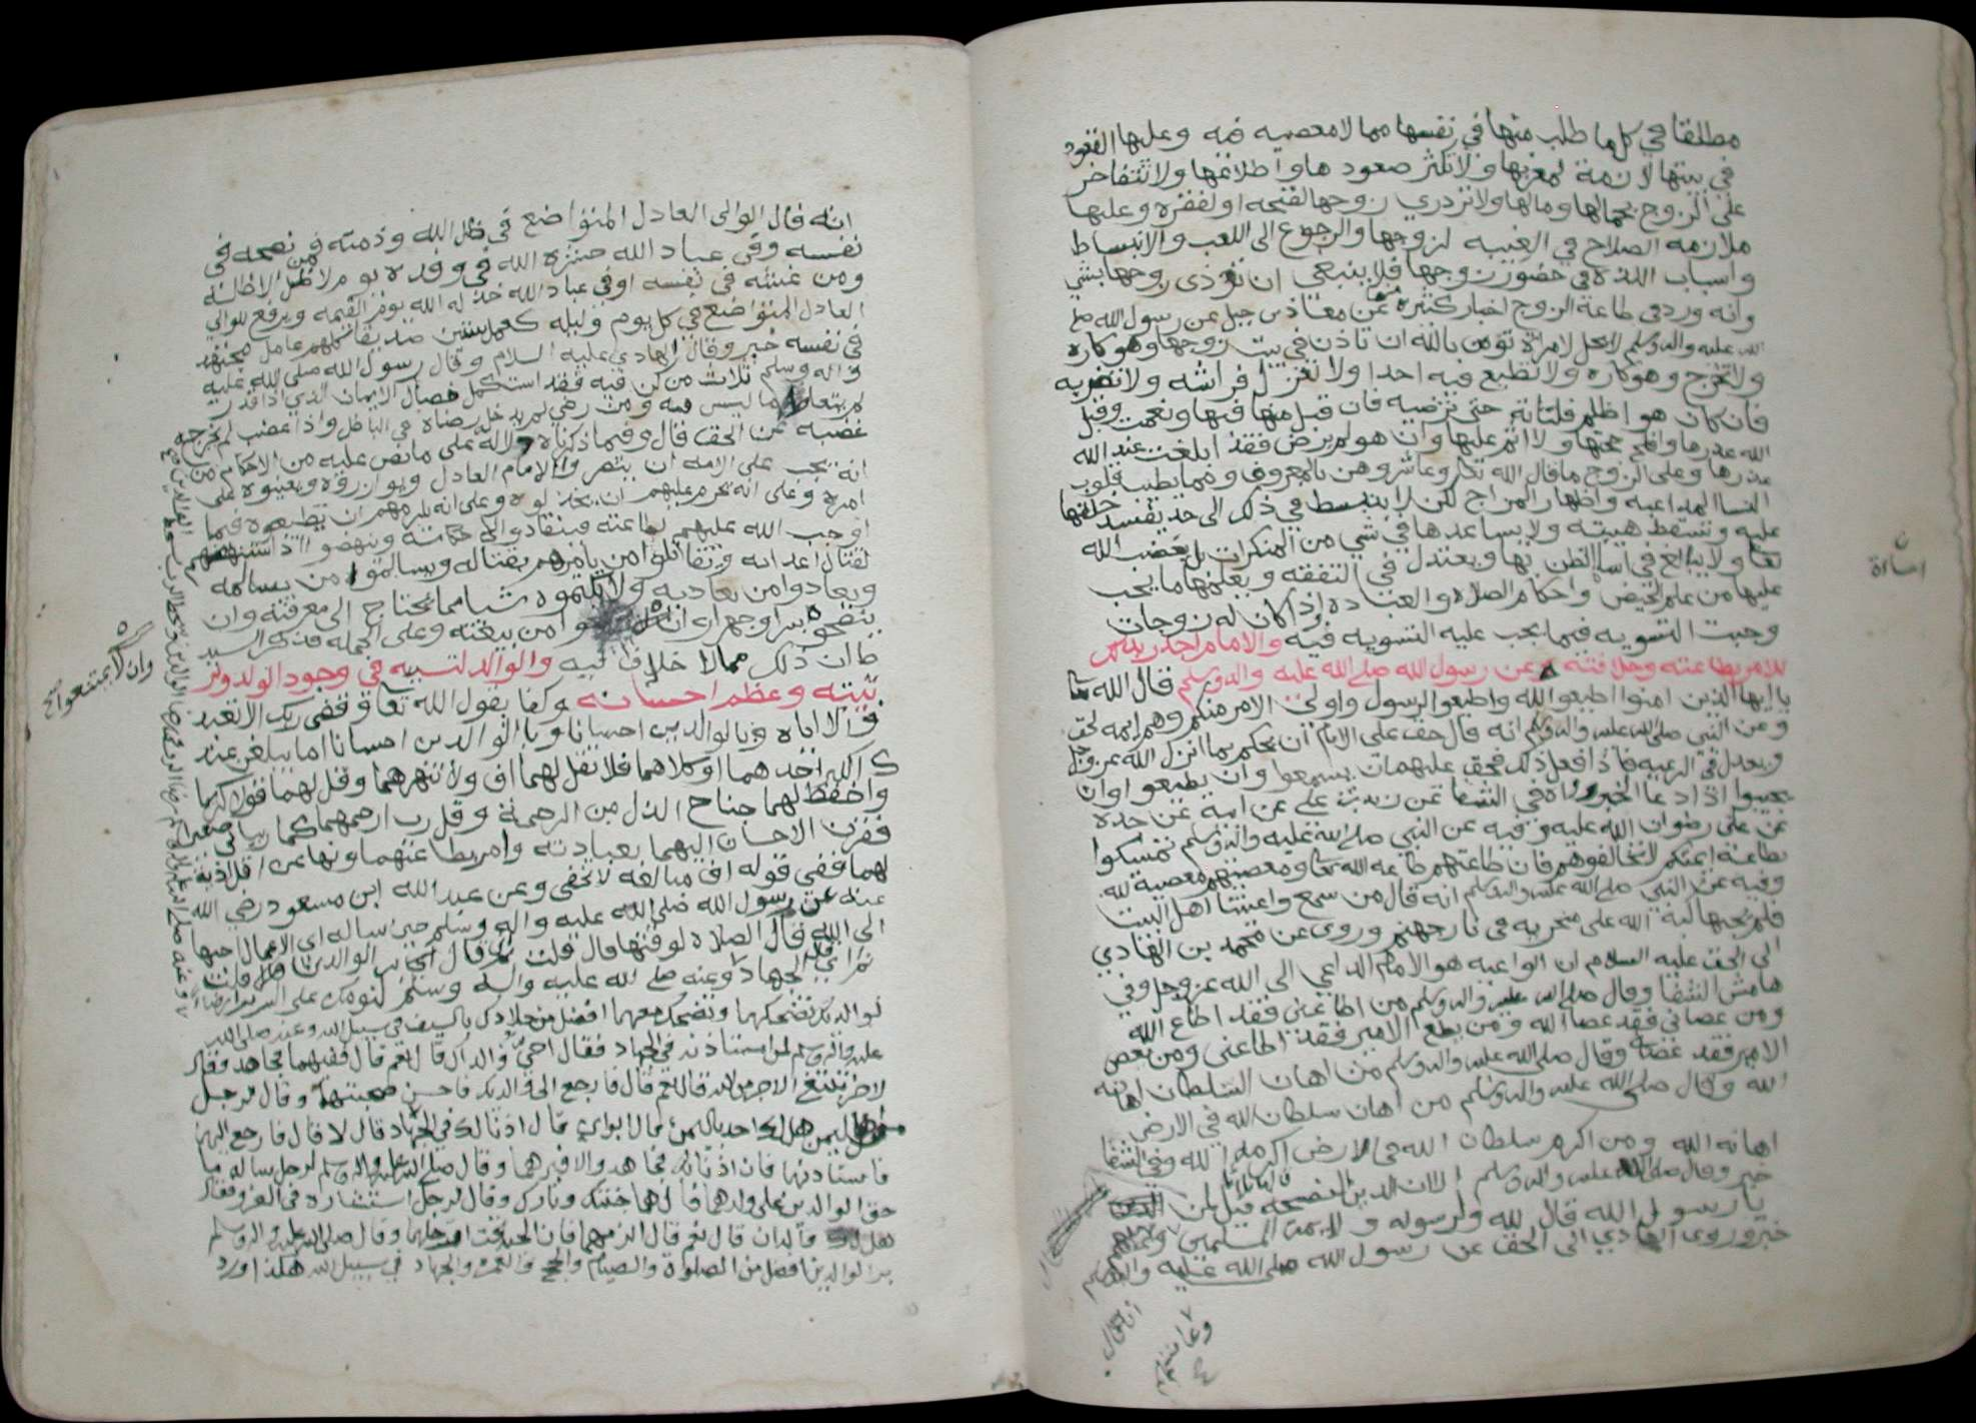 مطلقا في كل ما طلب منها في نفسها مما لا معصيه فيه وعليها القعود
في بيتها لازمة لمغزلها ولا تكثر صعودها واطلاعها ولا تتفاخر
على الزوج بجمالها ومالها ولا تزدري زوجها لقبحه او لفقره وعليها
ملازمه الصلاح في الغيبه لزوجها والرجوع الى اللعب والانبساط
واسباب اللذه في حضور زوجها فلا ينبغي ان توذى زوجها بشي
وانه ورد في طاعة الزوج اخبار كثيره عن معاذ بن جبل عن رسول الله صلى
الله عليه واله وسلم لا يحل لامراة تؤمن بالله ان تاذن في بيت زوجها وهو كاره
ولا تخرج وهو كاره ولا تطيع فيه احدا ولا تعزل فراشه ولا تضر به
فان كان هو اظلم فلتاته حتى ترضيه فان قبل منها فبها ونعمت وقبل
الله عذرها وافلح حجتها ولا اثم عليها وان هو لم يرض فقد ابلغت عند الله
عذرها وعلى الزوج ما قال الله تعالى وعاشروهن بالمعروف ومما يطيب قلوب
النسا المداعبه واظهار المزاح لكن لا ينبسط في ذلك الى حد يفسد خلقها
عليه وتسقط هيبته ولا يساعدها في شي من المنكرات بل يغضب لله
تعالى ولا يبالغ في اساة الظن بها ويعتدل في النفقه ويعلمها ما يجب
عليها من علم الحيض واحكام الصلاه والعباده واذا كان له زوجات
وجبت التسويه فيما يجب عليه التسويه فيه والامام اجدر
للامر بطاعته وخلافته عن رسول الله صلى الله عليه واله وسلم قال الله تعالى
يا ايها الذين امنوا اطيعوا الله واطيعوا الرسول واولي الامر منكم وهم ايمه الحق
وعن النبي صلى الله عليه واله وسلم انه قال حق على الامام ان يحكم بما انزل الله عز وجل
ويعدل في الرعيه فاذا فعل ذلك فحق عليهم ان يسمعوا وان يطيعوا وان
يجيبوا اذا دعا الخبر رواه في الشفا عن زيد بن علي عن ابيه عن جده
عن علي رضوان الله عليه وفيه عن النبي صلى الله عليه واله وسلم تمسكوا
بطاعة ايمتكم لا تخالفوهم فان طاعتهم طاعه الله تعالى ومعصيتهم معصية لله
وفيه عن النبي صلى الله عليه واله وسلم انه قال من سمع واعيتنا اهل البيت
فلم يجبها كبه الله على منخريه في نار جهنم وروى عن محمد بن الهادي
الى الحق عليه السلام ان الواعيه هو الامام الداعي الى الله عز وجل وفي
هامش الشفا وقال صلى الله عليه واله وسلم من اطاعني فقد اطاع الله
ومن عصاني فقد عصا الله ومن يطع الامير فقد اطاعني ومن يعص
الامير فقد عصاني وقال صلى الله عليه واله وسلم من اهان السلطان اهانه
الله وقال صلى الله عليه واله وسلم من اهان سلطان الله في الارض
اهانه الله ومن اكرم سلطان الله في الارض اكرمه الله وفي الشفا
خبر وقال صلى الله عليه واله وسلم الا ان الدين النصيحه قالها ثلاثا قيل لمن
يا رسول الله قال لله ولرسوله ولايمة المسلمين
خبر وروى الهادي الى الحق عن رسول الله صلى الله عليه واله وسلم
اساة
وعامتهم
انه قال الوالى العادل المتواضع في ظل الله وذمته فمن نصحه في
نفسه وفي عباد الله حشره الله في وفده يوم لا ظل الا ظله
ومن غشه في نفسه او في عباد الله خذله الله يوم القيمه ويرفع للوالي
العادل المتواضع في كل يوم وليله كعمل ستين صديقا كلهم عامل مجتهد
في نفسه خبر وقال الهادي عليه السلام وقال رسول الله صلى الله عليه
واله وسلم ثلاث من كن فيه فقد استكمل خصال الايمان الذي اذا قدر
لم يتعاط ما ليس له ومن رضي لم يدخل رضاه في الباطل واذا غضب لم يخرجه
غضبه عن الحق قال وفيما ذكرناه دلاله على ما نص عليه من الاحكام من
انه يجب على الامه ان ينصروا الامام العادل ويوازروه ويعينوه على
امره وعلى انه يحرم عليهم ان يخذلوه وعلى انه يلزمهم ان يطيعوه فيما
اوجب الله عليهم طاعته فينقادوا الى حكامته وينهضوا اذا استنهضهم
لقتال اعدايه ويقاتلوا من يامرهم بقتاله ويسالموا من يسالمه
ويعادوا من يعاديه ولا يكتموه شيا مما يحتاج الى معرفته وان
ينصحوه سرا وجهرا وان من بيعته وعلى الجمله فذكر السيد
ط ان ذلك مما لا خلاف فيه والوالد لتسببه في وجود الولد وتر
بيته وعظم احسانه وكفا بقول الله تعالى وقضى ربك الا تعبد
وا الا اياه وبالوالدين احسانا وبالوالدين احسانا اما يبلغن عند
ك الكبر احدهما او كلاهما فلا تقل لهما اف ولا تنهرهما وقل لهما قولا كريما
واخفض لهما جناح الذل من الرحمة وقل رب ارحمهما كما ربياني صغيرا
فقرن الاحسان اليهما بعبادته وامر بطاعتهما ونها عن اقل اذية
لهما ففي قوله اف مبالغه لا تخفى وعن عبد الله ابن مسعود رضي الله
عنه عن رسول الله صلى الله عليه واله وسلم حين ساله اي الاعمال احبها
الى الله قال الصلاه لوقتها قال قلت ثم اي قال بر الوالدين قال قلت
ثم اي قال الجهاد وعنه صلى الله عليه واله وسلم لنومك على السرير
لوالديك تضحكهما وتضحك معهما افضل من جلادك بالسيف في سبيل الله وعنه صلى الله
عليه واله وسلم لمن استاذنه في الجهاد فقال احي والداك قال نعم قال ففيهما فجاهد وقال
لاخر تبتغي الاجر من الله قال نعم قال فارجع الى والديك فاحسن صحبتهما وقال لرجل
من اهل اليمن هل لك احد باليمن قال ابواي قال اذنا لك في الجهاد قال لا قال فارجع اليهما
فاستاذنهما فان اذنا لك فجاهد والا فبرهما وقال صلى الله عليه واله وسلم لرجل ساله ما
حق الوالدين على ولدهما قال هما جنتك ونارك وقال لرجل استشاره في الغزو فقال
هل لك والدان قال نعم قال الزمهما فان الجنة تحت ارجلهما وقال صلى الله عليه واله وسلم
بر الوالدين افضل من الصلوة والصيام والحج والعمره والجهاد في سبيل الله هكذا ورد
وان لا يمتنعوا